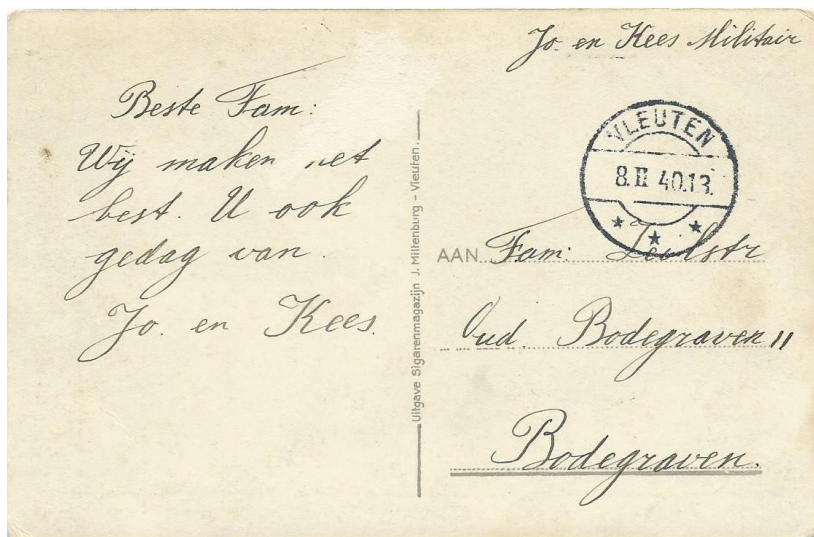 Jo. en Kees Militair
Beste Fam:
Wij maken het
best. U ook
gedag van.
Jo. en Kees.
Uitgave Sigarenmagazijn J. Miltenburg - Vleuten.
VLEUTEN
8.II 40.13.
AAN Fam:
Oud. Bodegraven 11
Bodegraven.